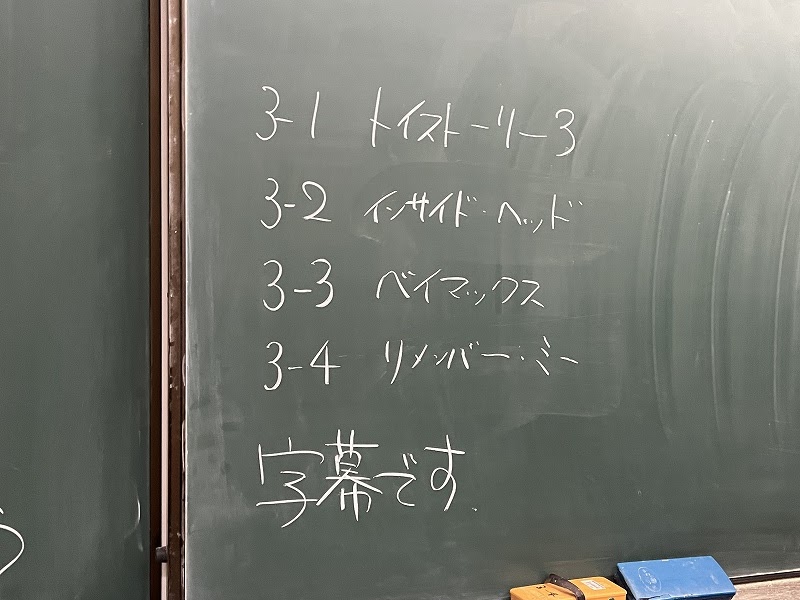 3-1 トイストーリー3
3-2 インサイド・ヘッド
3-3 ベイマックス
3-4 リメンバー・ミー
字幕です.